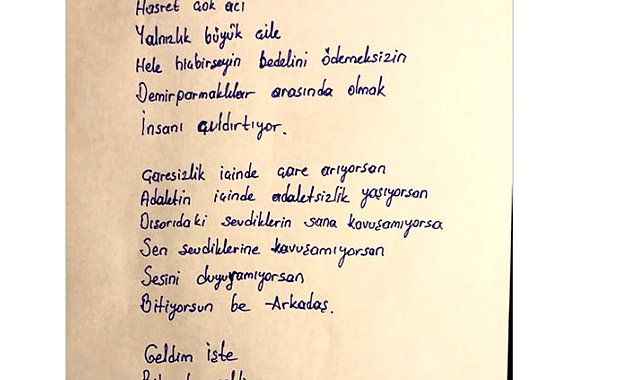 Hasret çok acı
Yalnızlık büyük çile
Hele hiçbirşeyin bedelini ödemeksizin
Demirparmaklılar arasında olmak
İnsanı çıldırtıyor.
Çaresizlik içinde çare arıyorsan
Adaletin içinde adaletsizlik yaşıyorsan
Dışarıdaki sevdiklerin sana kavuşamıyorsa
Sen sevdiklerine kavuşamıyorsan
Sesini duyuramıyorsan
Bitiyorsun be Arkadaş.
Geldim işte